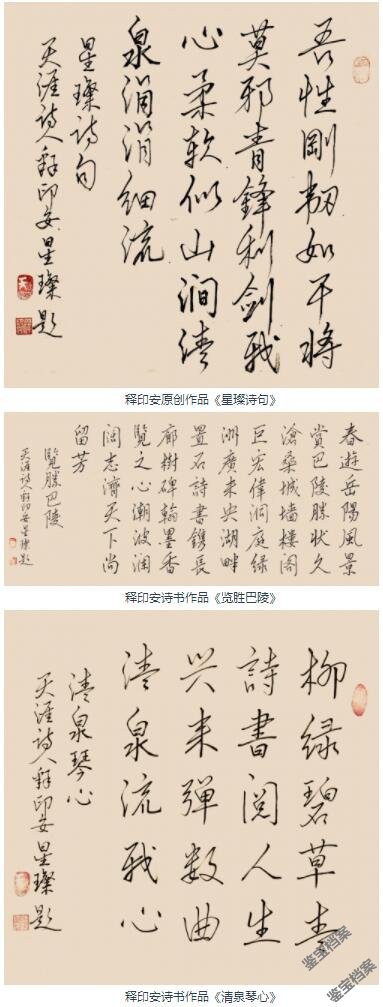 吾性剛韧如干将
莫邪青锋利剑我
心柔软似山涧清
泉涓涓细流
星璨诗句
天涯诗人释印安星璨题
释印安原创作品《星璨诗句》
春遊岳陽風景
賞巴陵勝狀久
滄桑城墙樓閣
巨宏偉洞庭緑
洲廣未央湖畔
置石詩書鐫長
廊樹碑翰墨香
覽之心潮波润
阔志濟天下尚
留芳
覽勝巴陵
天涯诗人释印安星璨题
释印安诗书作品《览胜巴陵》
柳绿碧草青
詩書阅人生
兴来弹数曲
清泉流我心
清泉琴心
天涯诗人释印安星璨题
鉴宝档案
鉴宝档案
释印安诗书作品《清泉琴心》